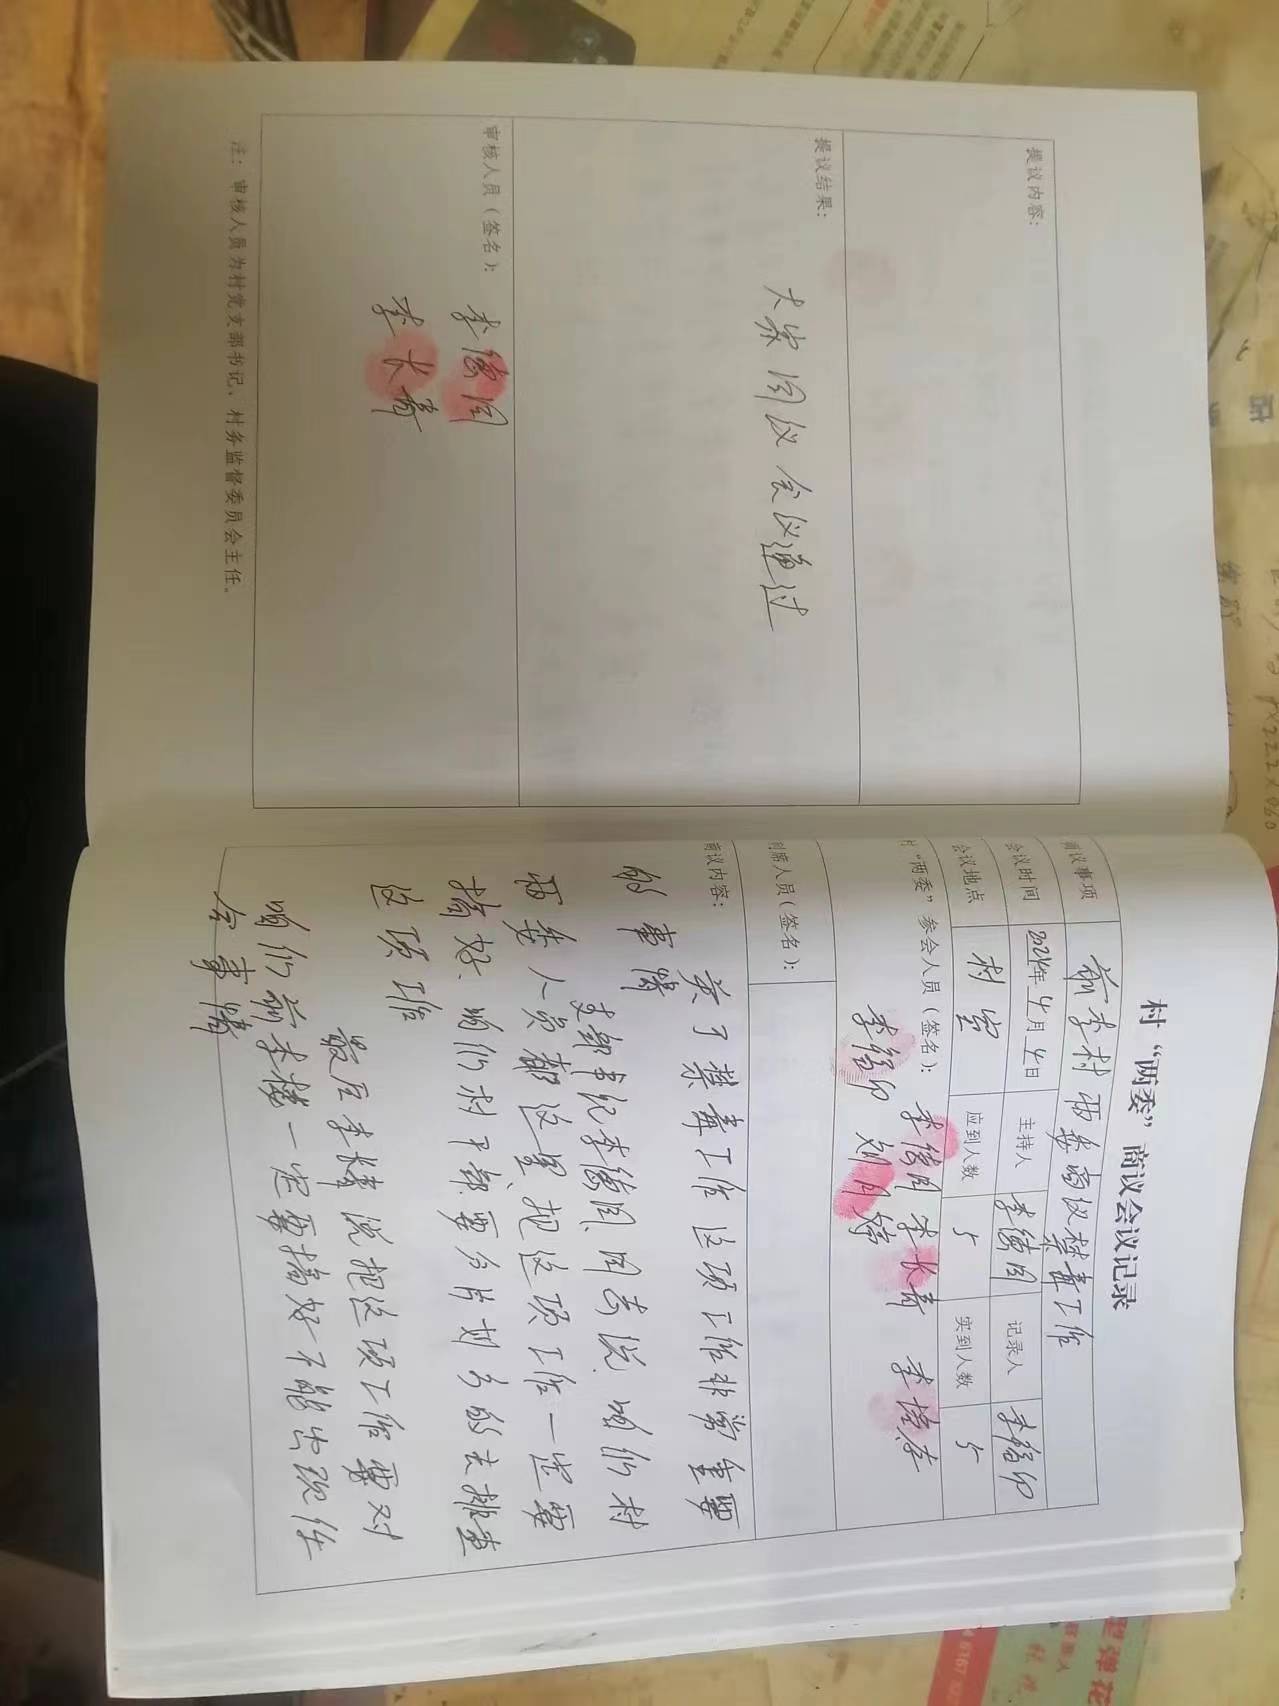 提议内容:
提议结果:
大家同议 会议通过
审核人员(签名):
李长
注: 审核人员为村党支部书记、村务监督委员会主任。
村“两委”商议会议记录
商议事项
前李村两委商议禁毒工作
会议时间
2024年4月4日
主持人
记录人
会议地点
村室
应到人数
5
实到人数
5
村“两委”参会人员(签名):
列席人员(签名):
商议内容:
关于禁毒工作 这项工作非常重要
的事情
支部书纪李 同志说, 咱们村
两委人员都这里, 把这项工作一定要
搞好, 咱们村干部要分片划分的去排查
这项工作
最后李 说把这项工作要对
咱们前李楼一定要搞好不能出现任
何事情